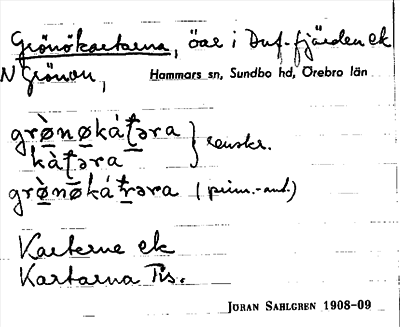 Grönökartarna, öar i Duf-fjärden ek
N Grönön, Hammars sn, Sundbo hd, Örebro län
grø̀nøká t̠əra
kàt̠əra } renskr.
grø̀nøká t̠rəra (prim.-ant.)
Karterne ek
Kartarna Tis.
JÖRAN SAHLGREN 1908-09